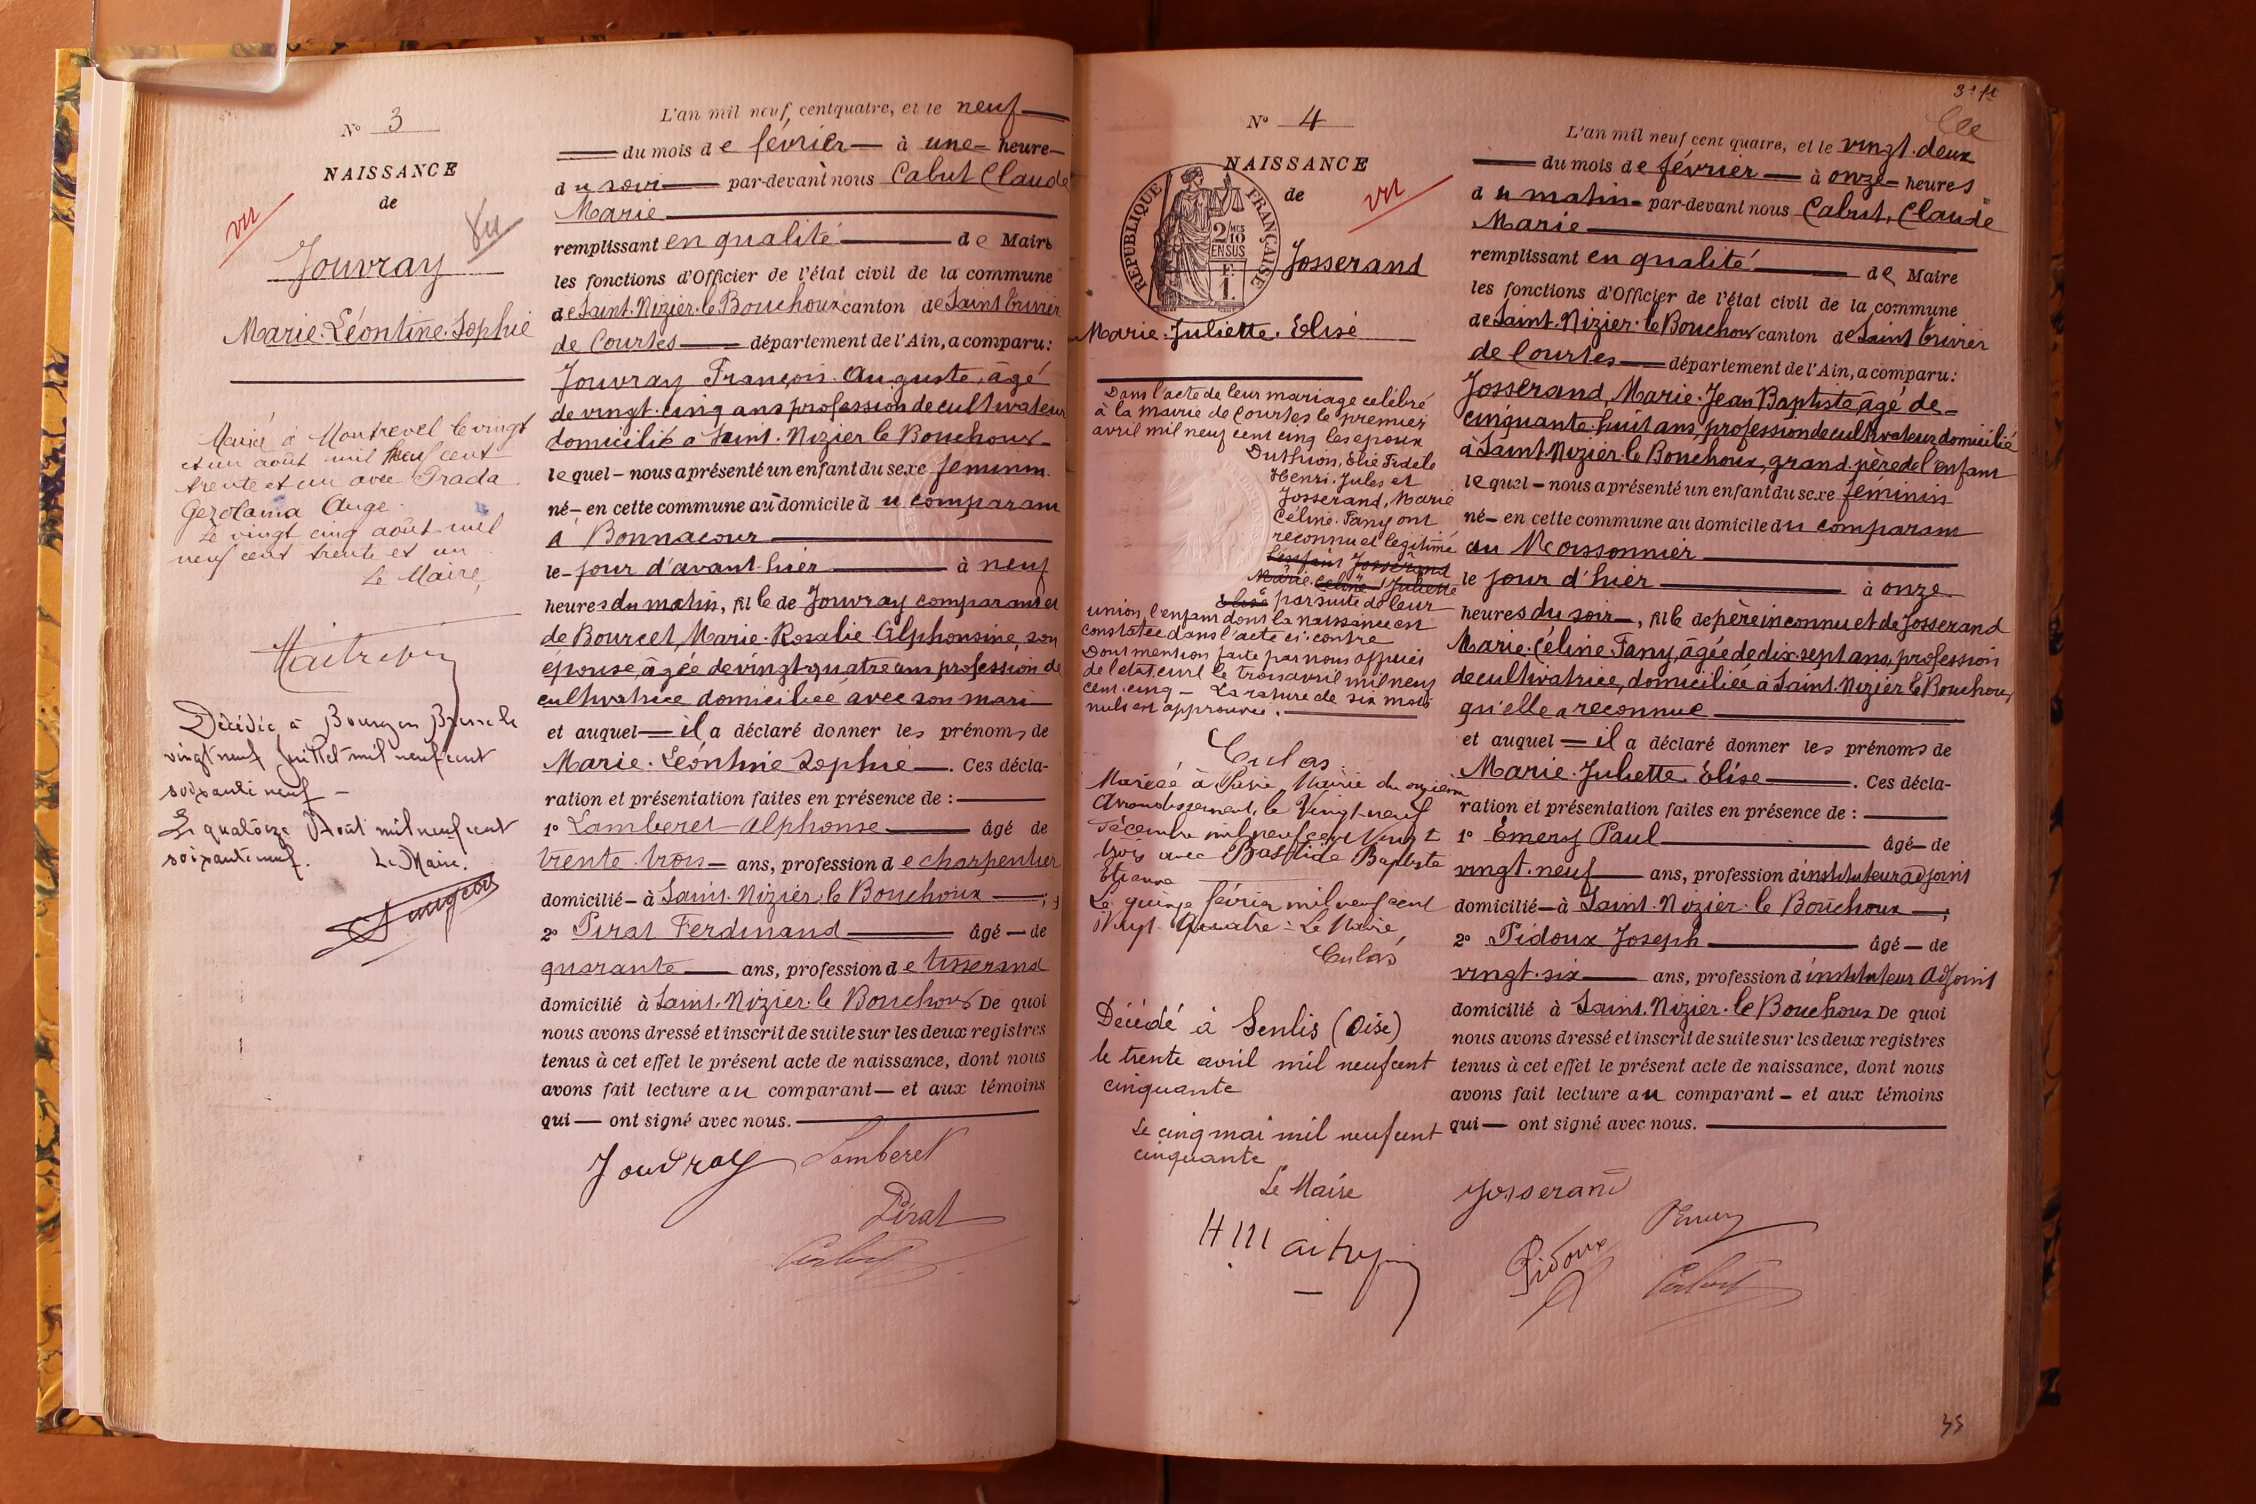 N° 3
NAISSANCE
de
vu
Jouvray
Marie-Léontine-Sophie
Marié à Montrevel le vingt
et un août mil neuf cent
trente et un avec Prada
Gerolama Ange.
Le vingt cinq août mil
neuf cent trente et un
Le Maire,
Décédée à Bourg en Bresse le
vingt neuf Juillet mil neuf cent
soixante neuf –
Le quatorze Août mil neuf cent
soixante neuf. Le Maire.
L'an mil neuf centquatre, et le neuf
du mois de février à une heure
du soir par-devant nous Cabut Claude
Marie
remplissant en qualité de Maire
les fonctions d'Officier de l'état civil de la commune
de Saint-Nizier-le-Bouchoux canton de Saint Trivier
de Courtes département de l'Ain, a comparu:
Jouvray François Auguste, âgé
de vingt-cinq ans profession de cultivateur
domicilié à Saint-Nizier le Bouchoux
lequel nous a présenté un enfant du sexe féminin
né en cette commune au domicile du comparant
à Bonnacour
le jour d'avant-hier à neuf
heures du matin, fille de Jouvray comparant et
de Bourcet, Marie-Rosalie Alphonsine, son
épouse, âgée de vingt-quatre ans profession de
cultivatrice domiciliée avec son mari
et auquel il a déclaré donner les prénoms de
Marie-Léontine Sophie. Ces décla-
ration et présentation faites en présence de :
1° Lamberet Alphonse âgé de
trente-trois ans, profession de charpentier
domicilié à Saint-Nizier-le Bouchoux ;
2° Pirat Ferdinand âgé de
quarante ans, profession de tisserand
domicilié à Saint-Nizier-le Bouchoux De quoi
nous avons dressé et inscrit de suite sur les deux registres
tenus à cet effet le présent acte de naissance, dont nous
avons fait lecture au comparant et aux témoins
qui ont signé avec nous.
Jouvray Lamberet
Pirat
Cabut
N° 4
NAISSANCE
de
vu
RÉPUBLIQUE FRANÇAISE
2/10
EN SUS
F.
1.
Josserand
Marie-Juliette-Elise
Dans l'acte de leur mariage célébré
à la mairie de Courtes le premier
avril mil neuf cent cinq les époux
Duthion, Elie Fidèle
Henri-Jules et
Josserand, Marie
Céline-Fany ont
reconnu et légitimé
l'enfant Josserand
Marie Céline Juliette
Elise par suite de leur
union, l'enfant dont la naissance est
constatée dans l'acte ci-contre
Dont mention faite par nous officier
de l'état civil le trois avril mil neuf
cent cinq – La rature de six mots
nuls est approuvée.
Culas
Mariée à Paris Mairie du onzième
Arrondissement, le Vingt neuf
Décembre mil neuf cent Vingt
trois avec Bastide Baptiste
Etienne
Le quinze février mil neuf cent
Vingt-Quatre = Le Maire,
Culas
Décédé à Senlis (Oise)
le trente avril mil neuf cent
cinquante
Le cinq mai mil neuf cent
cinquante
Le Maire
3e ft
L'an mil neuf cent quatre, et le vingt-deux
du mois de février à onze heures
du matin par-devant nous Cabut, Claude
Marie
remplissant en qualité de Maire
les fonctions d'Officier de l'état civil de la commune
de Saint-Nizier-le Bouchoux canton de Saint Trivier
de Courtes département de l'Ain, a comparu:
Josserand, Marie-Jean Baptiste âgé de
cinquante-huit ans, profession de cultivateur domicilié
à Saint-Nizier-le Bouchoux, grand-père de l'enfant
lequel nous a présenté un enfant du sexe féminin
né en cette commune au domicile du comparant
au Moissonnier
le jour d'hier à onze
heures du soir, fille de père inconnu et de Josserand
Marie-Céline-Fany, âgée de dix-sept ans, profession
de cultivatrice, domiciliée à Saint-Nizier le Bouchoux,
qu'elle a reconnue
et auquel il a déclaré donner les prénoms de
Marie-Juliette-Elise. Ces décla-
ration et présentation faites en présence de :
1° Emery Paul âgé de
vingt-neuf ans, profession d'instituteur adjoint
domicilié à Saint-Nizier-le Bouchoux ;
2° Pidoux Joseph âgé de
vingt-six ans, profession d'instituteur Adjoint
domicilié à Saint-Nizier-le Bouchoux De quoi
nous avons dressé et inscrit de suite sur les deux registres
tenus à cet effet le présent acte de naissance, dont nous
avons fait lecture au comparant et aux témoins
qui ont signé avec nous.
Josserand
Emery
Pidoux
Cabut